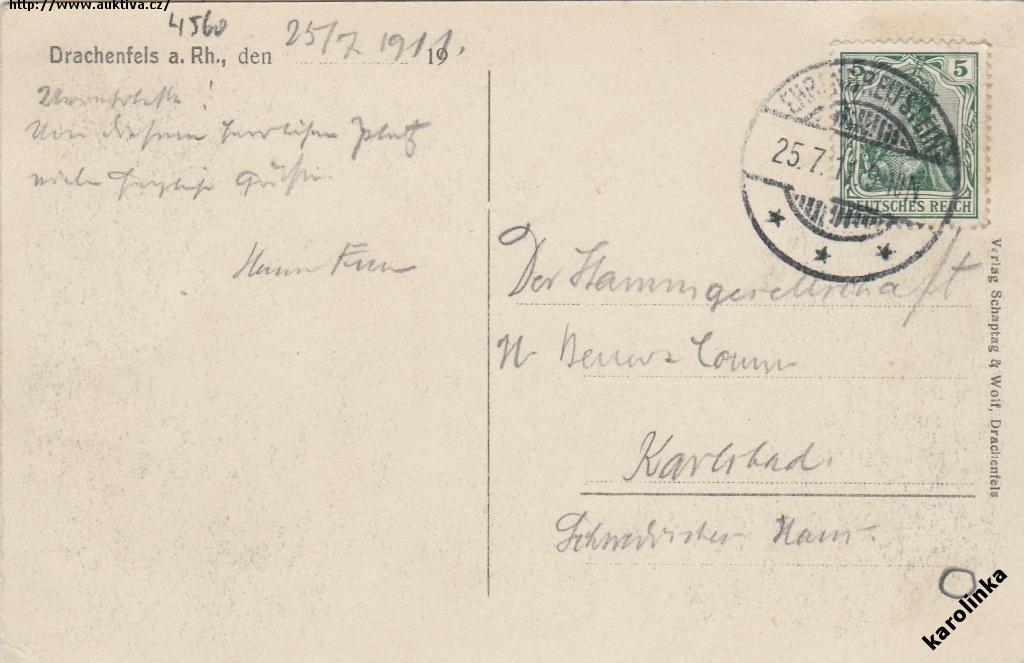 http://www.auktiva.cz/
4560
Drachenfels a. Rh., den 25/7 1911. 19
Von diesem herrlichen Platz
viele herzliche Grüße
5 5
DEUTSCHES REICH
EHRENBREITSTEIN
25.7.11
Der Stammgesellschaft
Karlsbad.
Schwedisches Haus.
Verlag Schaptag & Wolf, Drachenfels
karolinka